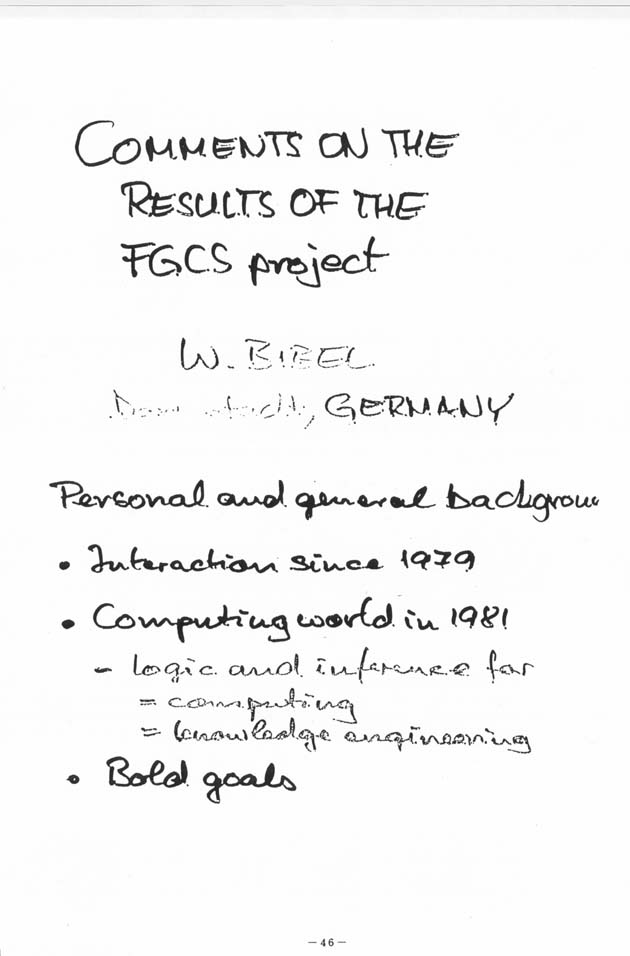 COMMENTS ON THE
RESULTS OF THE
FGCS project
W. BIBEL
Darmstadt, GERMANY
Personal and general backgrou
• Interaction since 1979
• Computing world in 1981
- logic and inference for
= computing
= knowledge engineering
• Bold goals
— 46 —